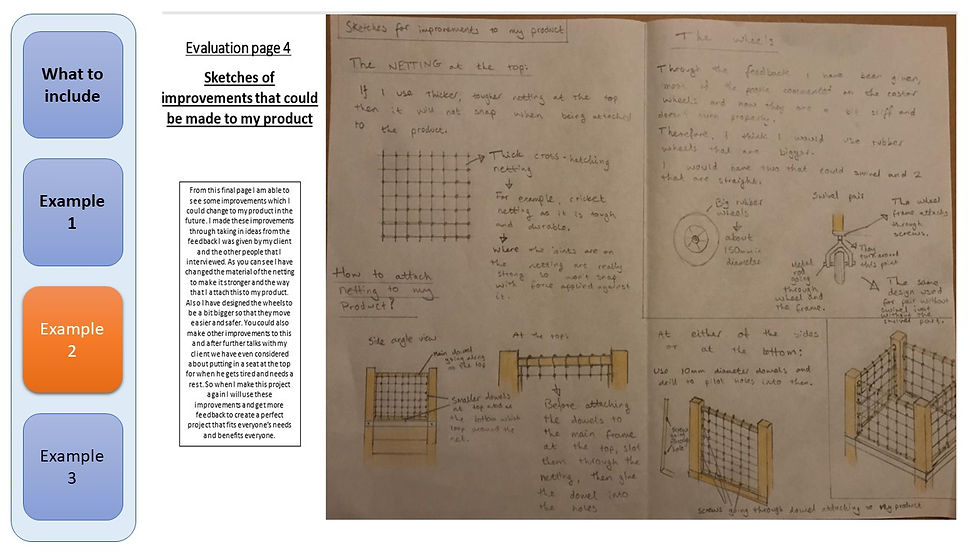 What to
include
Example
1
Example
2
Example
3
Evaluation page 4
Sketches of
improvements that could
be made to my product
From this final page I am able to
see some improvements which I
could change to my product in the
future. I made these improvements
through taking in ideas from the
feedback I was given by my client
and the other people that I
interviewed. As you can see I have
changed the material of the netting
to make it stronger and the way
that I attach this to my product.
Also I have designed the wheels to
be a bit bigger so that they move
easier and safer. You could also
make other improvements to this
and after further talks with my
client we have even considered
about putting in a seat at the top
for when he gets tired and needs a
rest. So when I make this project
again I will use these
improvements and get more
feedback to create a perfect
project that fits everyone's needs
and benefits everyone.
Sketches for improvements to my product
The NETTING at the top:
If I use thicker, tougher netting at the top
then it will not snap when being attached
to the product.
Thick cross-hatching
netting
For example, cricket
netting as it is tough
and durable.
Where the joints are on
the netting are really
strong so won't snap
with force applied against
it.
How to attach
netting to my
Product?
Side angle view
main dowel going along
on the top
Smaller dowels
at top and at
the bottom which
loop around the
net.
At the top:
Before attaching
the dowels to
the main frame
at the top, slot
them through the
netting, then glue
the dowel into
the holes
The wheels
Through the feedback I have been given,
most of the people commented on the castor
wheels and how they are a bit stiff and
doesn't turn properly.
Therefore, I think I would use rubber
wheels that are bigger.
I would have two that could swivel and 2
that are straight.
Big rubber
wheels
about
150mm
diameter
Swivel pair
The wheel
frame attaches
through
screws.
They
turn around
this point
Metal
rod
going
through
wheel and
the frame.
The same
design used
for pair without
swivel just
without the
swivel part.
At either of the sides
or at the bottom:
Use 10mm diameter dowels and
drill to pilot holes into them.
Screws
going
through
hole
Screws going through dowel attaching to my product